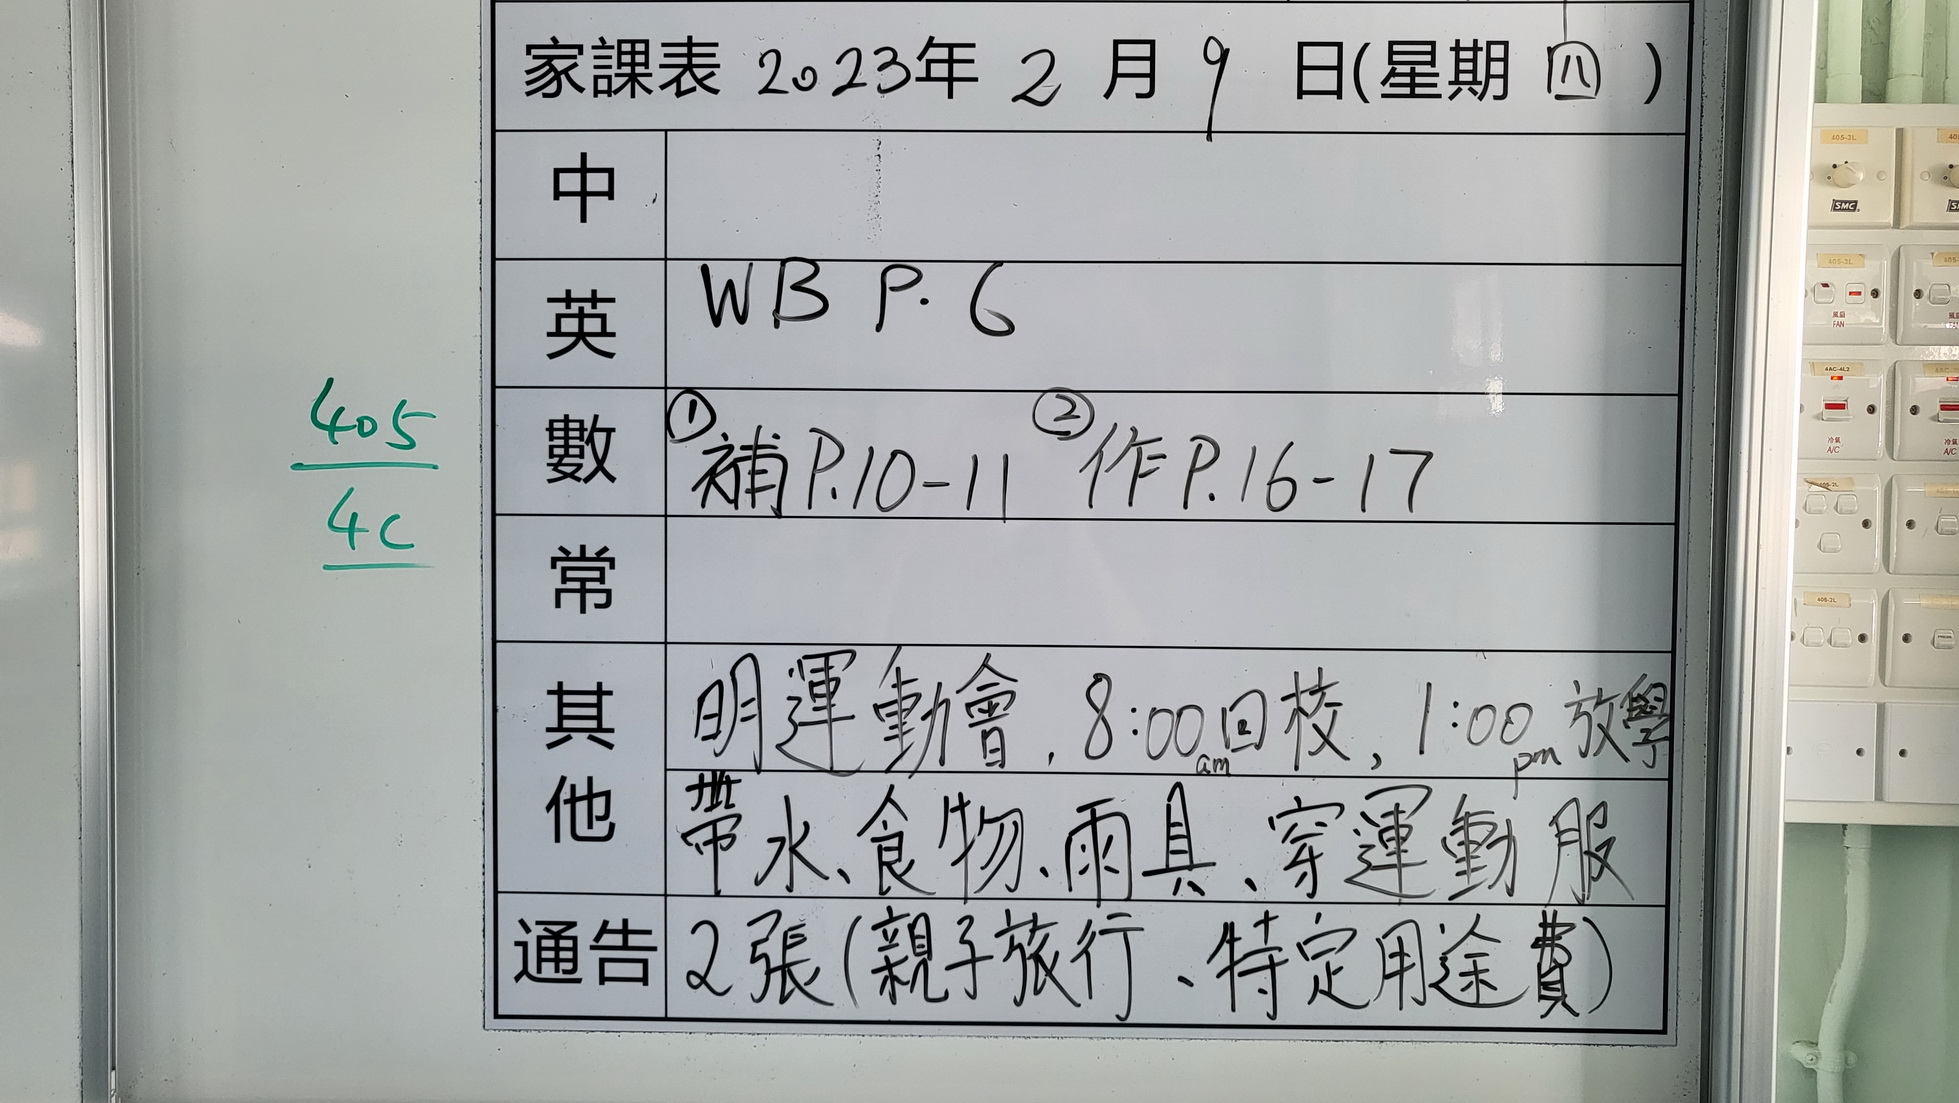 家課表 2023年 2 月 9 日(星期 四 )
中
英 WB P. 6
數 ①補P.10-11 ②作P.16-17
常
其他 明運動會, 8:00am回校, 1:00pm放學
帶水、食物、雨具、穿運動服
通告 2張(親子旅行、特定用途費)
405
4C
405-3L
SMC
405-3L
風扇
FAN
4AC-4L2
冷氣
A/C
405-2L